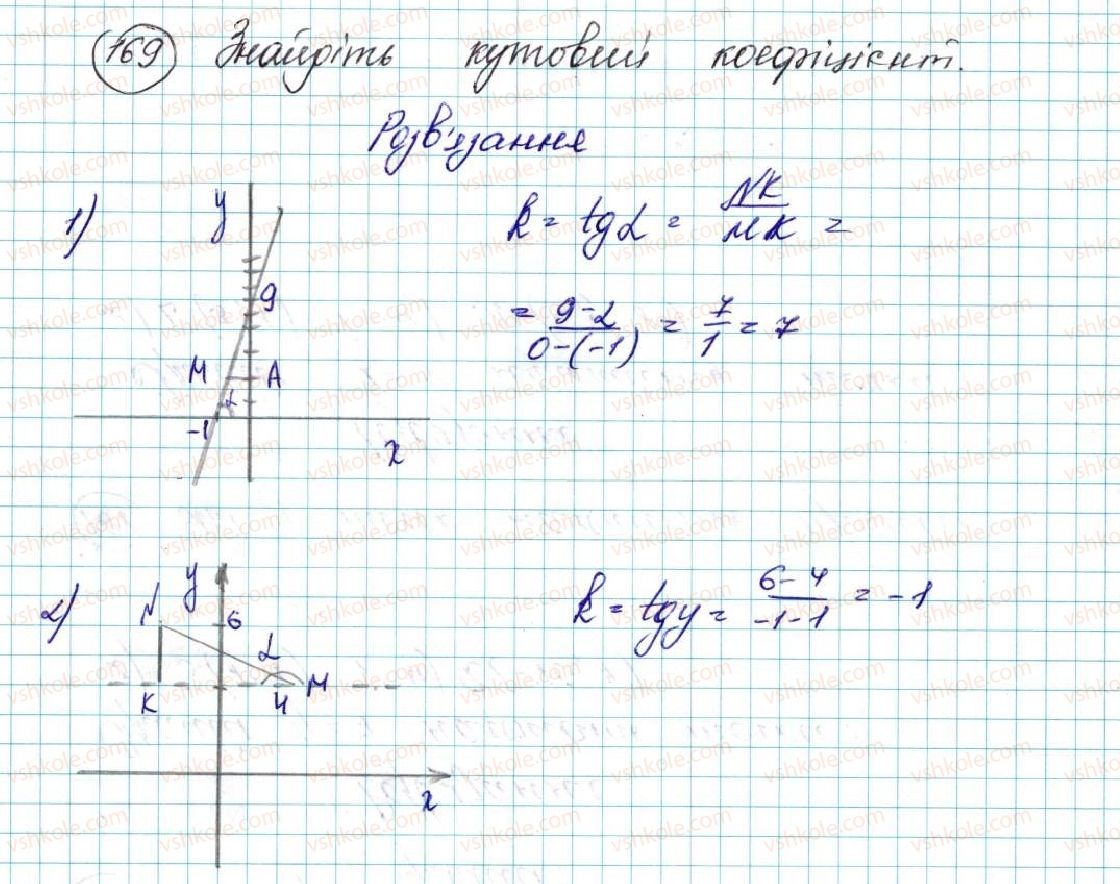 169 Знайдіть кутовий коефіцієнт.
Розв'язання
1)
y
9
M A
α
-1
x
k = tgα = NK/MK =
= 9-2/0-(-1) = 7/1 = 7
2)
y
N
6
α
K
4
M
x
k = tgγ = 6-4/-1-1 = -1